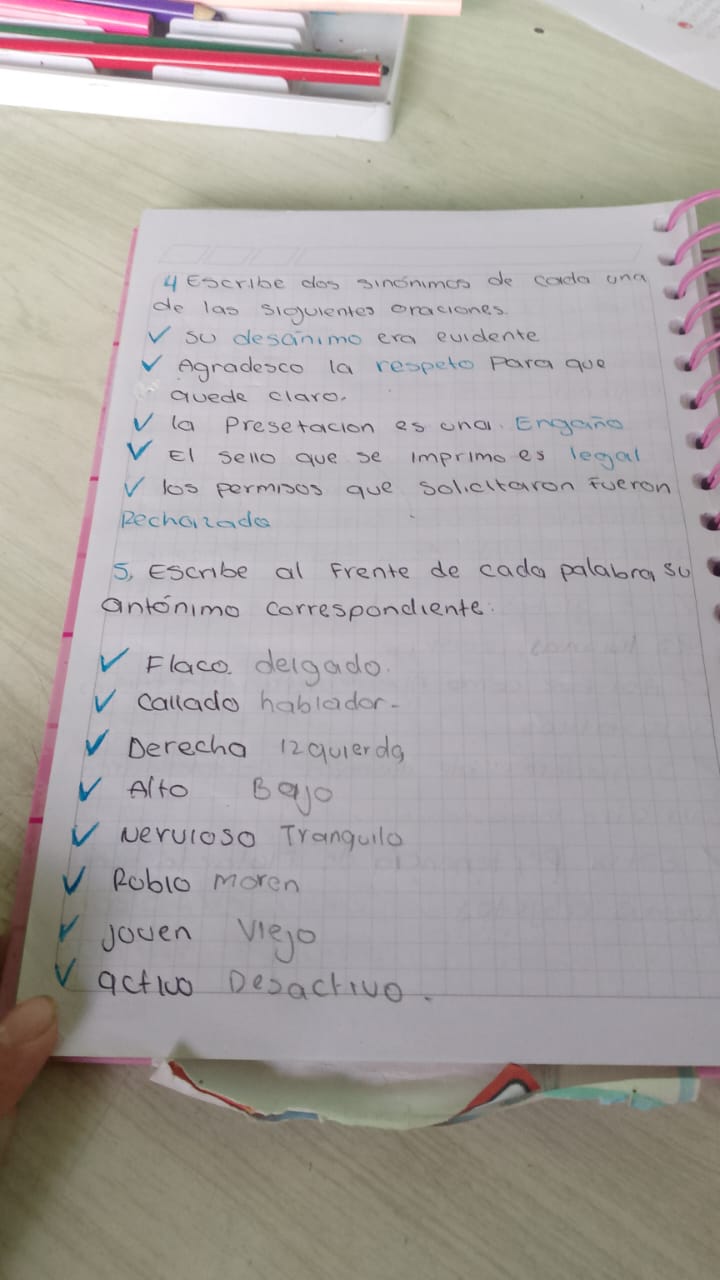 4 Escribe dos sinónimos de cada una
de las siguientes oraciones.
su desánimo era evidente
Agradesco la respeto para que
quede claro.
la Presetacion es una. Engaño
El sello que se imprimo es legal
los permisos que solicitaron fueron
Rechazado
5, Escribe al frente de cada palabra, su
antónimo correspondiente:
Flaco. delgado.
callado hablador-
Derecha izquierda
Alto Bajo
Nervioso Tranquilo
Rubio moren
joven Viejo
activo Desactivo.